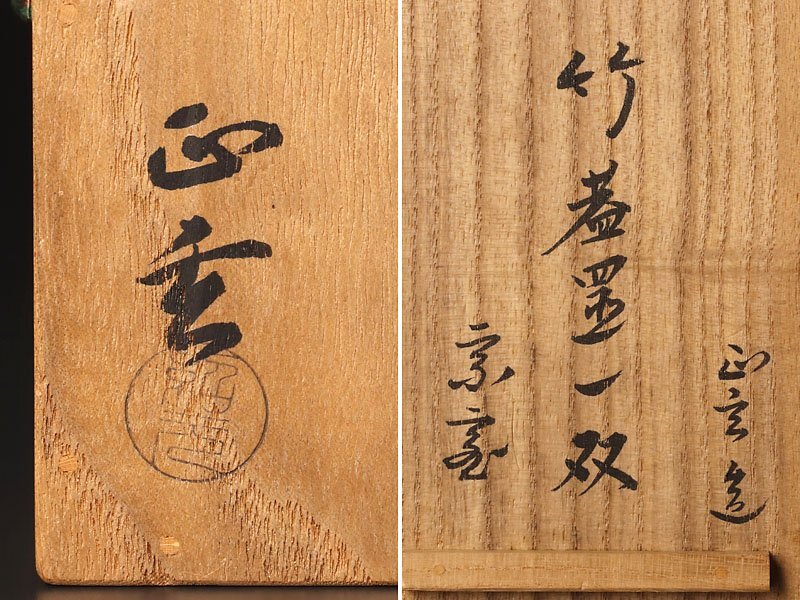 正玄
正玄造
竹蓋置一双
宗室